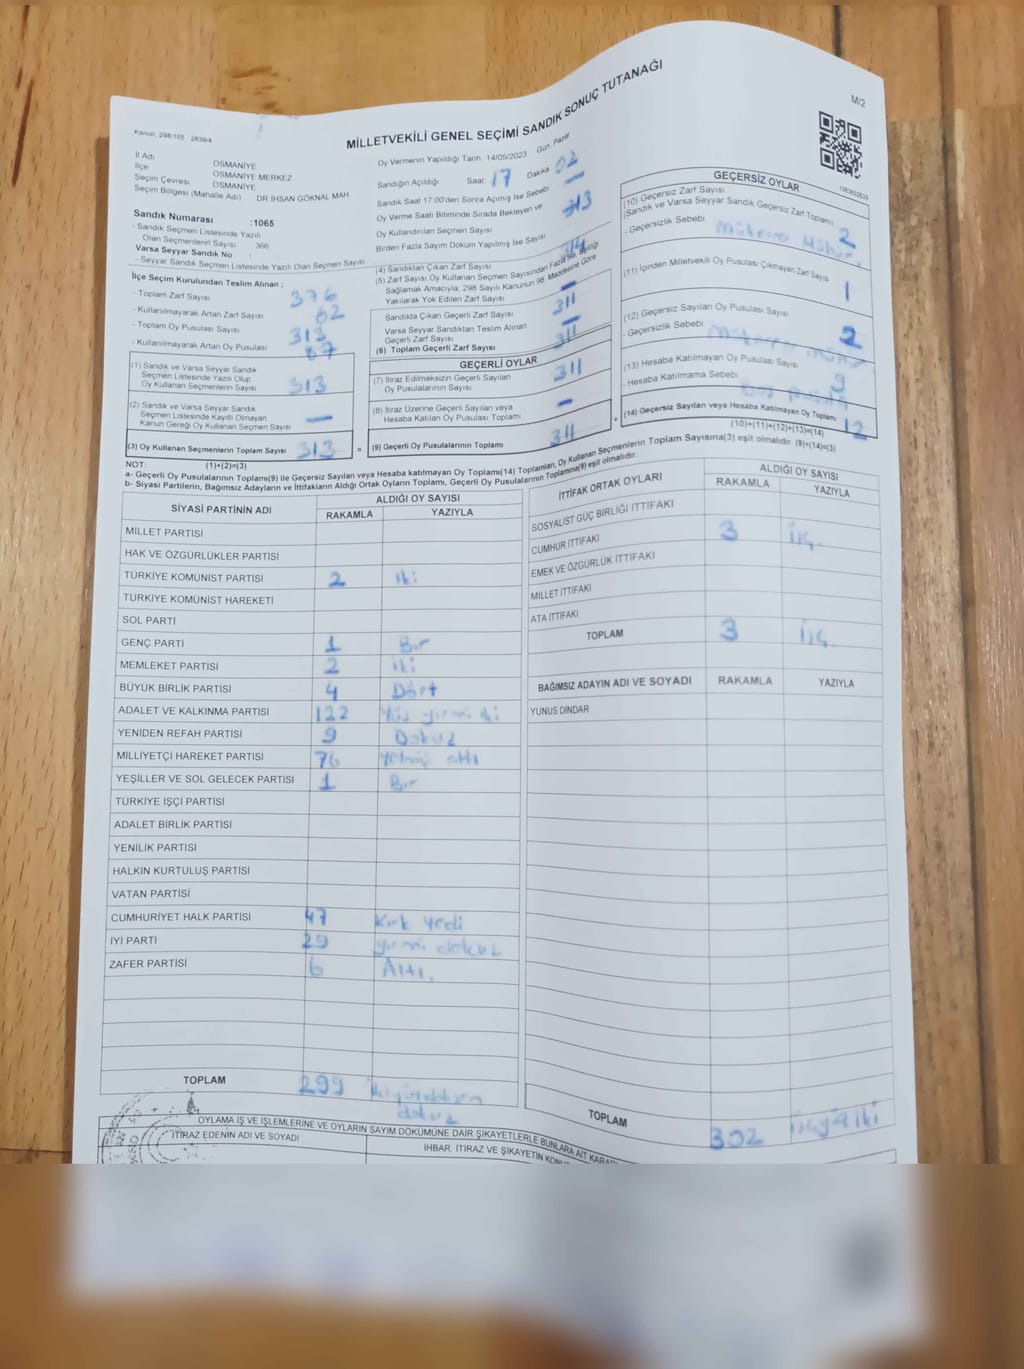 M/2
Kanun, 298/105 , 2839/4
MİLLETVEKİLİ GENEL SEÇİMİ SANDIK SONUÇ TUTANAĞI
İl Adı OSMANİYE
İlçe OSMANİYE MERKEZ
Seçim Çevresi OSMANİYE
Seçim Bölgesi (Mahalle Adı) DR İHSAN GÖKNAL MAH.
Sandık Numarası :1065
- Sandık Seçmen Listesinde Yazılı
Olan Seçmenlerin Sayısı 366
Varsa Seyyar Sandık No :
- Seyyar Sandık Seçmen Listesinde Yazılı Olan Seçmen Sayısı
Oy Vermenin Yapıldığı Tarih 14/05/2023 Gün Pazar
Sandığın Açıldığı Saat 17 Dakika 02
Sandık Saat 17.00'den Sonra Açılmış İse Sebebi —
Oy Verme Saati Bitiminde Sırada Bekleyen ve
Oy Kullandırılan Seçmen Sayısı
Birden Fazla Sayım Döküm Yapılmış İse Sayısı
İlçe Seçim Kurulundan Teslim Alınan ;
- Toplam Zarf Sayısı 376
- Kullanılmayarak Artan Zarf Sayısı 62
- Toplam Oy Pusulası Sayısı 313
- Kullanılmayarak Artan Oy Pusulası 87
(1) Sandık ve Varsa Seyyar Sandık
Seçmen Listesinde Yazılı Olup
Oy Kullanan Seçmenlerin Sayısı 313
(2) Sandık ve Varsa Seyyar Sandık
Seçmen Listesinde Kayıtlı Olmayan
Kanun Gereği Oy Kullanan Seçmen Sayısı —
(3) Oy Kullanan Seçmenlerin Toplam Sayısı 313
(4) Sandıktan Çıkan Zarf Sayısı 314
(5) Zarf Sayısı Oy Kullanan Seçmen Sayısından Fazla ise, Eşitliği
Sağlamak Amacıyla, 298 Sayılı Kanunun 98. Maddesine Göre
Yakılarak Yok Edilen Zarf Sayısı —
Sandıkta Çıkan Geçerli Zarf Sayısı 311
Varsa Seyyar Sandıktan Teslim Alınan
Geçerli Zarf Sayısı —
(6) Toplam Geçerli Zarf Sayısı 311
GEÇERLİ OYLAR
(7) İtiraz Edilmeksizin Geçerli Sayılan
Oy Pusulalarının Sayısı 311
(8) İtiraz Üzerine Geçerli Sayılan veya
Hesaba Katılan Oy Pusulası Toplamı —
= (9) Geçerli Oy Pusulalarının Toplamı 311
GEÇERSİZ OYLAR
(10) Geçersiz Zarf Sayısı
(Sandık ve Varsa Seyyar Sandık Geçersiz Zarf Toplamı) 2
- Geçersizlik Sebebi Mükerrer Mühür
(11) İçinden Milletvekili Oy Pusulası Çıkmayan Zarf Sayısı 1
(12) Geçersiz Sayılan Oy Pusulası Sayısı 2
- Geçersizlik Sebebi Mükerrer Mühür
(13) Hesaba Katılmayan Oy Pusulası Sayısı 9
- Hesaba Katılmama Sebebi
+ (14) Geçersiz Sayılan veya Hesaba Katılmayan Oy Toplamı 12
(10)+(11)+(12)+(13)=(14)
NOT: (1)+(2)=(3)
a- Geçerli Oy Pusulalarının Toplamı(9) ile Geçersiz Sayılan veya Hesaba katılmayan Oy Toplamı(14) Toplamları, Oy Kullanan Seçmenlerin Toplam Sayısına(3) eşit olmalıdır. (9)+(14)=(3)
b- Siyasi Partilerin, Bağımsız Adayların ve İttifakların Aldığı Ortak Oyların Toplamı, Geçerli Oy Pusulalarının Toplamına(9) eşit olmalıdır.
SİYASİ PARTİNİN ADI ALDIĞI OY SAYISI
RAKAMLA YAZIYLA
MİLLET PARTİSİ
HAK VE ÖZGÜRLÜKLER PARTİSİ
TÜRKİYE KOMÜNİST PARTİSİ 2 iki
TÜRKİYE KOMÜNİST HAREKETİ
SOL PARTİ
GENÇ PARTİ 1 Bir
MEMLEKET PARTİSİ 2 iki
BÜYÜK BİRLİK PARTİSİ 4 Dört
ADALET VE KALKINMA PARTİSİ 122 Yüz yirmi iki
YENİDEN REFAH PARTİSİ 9 Dokuz
MİLLİYETÇİ HAREKET PARTİSİ 76 Yetmiş altı
YEŞİLLER VE SOL GELECEK PARTİSİ 1 Bir
TÜRKİYE İŞÇİ PARTİSİ
ADALET BİRLİK PARTİSİ
YENİLİK PARTİSİ
HALKIN KURTULUŞ PARTİSİ
VATAN PARTİSİ
CUMHURİYET HALK PARTİSİ 47 Kırk yedi
İYİ PARTİ 29 yirmi dokuz
ZAFER PARTİSİ 6 Altı.
TOPLAM 299 ikiyüzdoksan
dokuz
İTTİFAK ORTAK OYLARI ALDIĞI OY SAYISI
RAKAMLA YAZIYLA
SOSYALİST GÜÇ BİRLİĞİ İTTİFAKI
CUMHUR İTTİFAKI 3 üç.
EMEK VE ÖZGÜRLÜK İTTİFAKI
MİLLET İTTİFAKI
ATA İTTİFAKI
TOPLAM 3 üç.
BAĞIMSIZ ADAYIN ADI VE SOYADI RAKAMLA YAZIYLA
YUNUS DİNDAR
TOPLAM 302 üçyüz iki
OYLAMA İŞ VE İŞLEMLERİNE VE OYLARIN SAYIM DÖKÜMÜNE DAİR ŞİKAYETLERLE BUNLARA AİT
İTİRAZ EDENİN ADI VE SOYADI
İHBAR, İTİRAZ VE ŞİKAYETİN